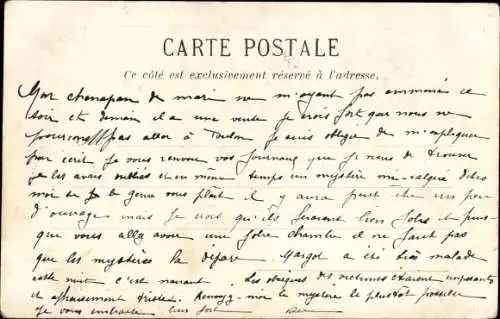 CARTE POSTALE
Ce côté est exclusivement réservé à l'adresse.
Mon chenapan de mari ne m'ayant pas emmenée ce
soir et demain il a une vente je crois fort que nous ne
pas aller à Toulon je suis obligée de m'expliquer
par écrit. Je vous renvoie vos journaux que je viens de trouver
je les avais oubliés et en même temps un mystère dites
moi si le genre vous plaît il y aura peut être un peu
d'ouvrage mais je crois qu'ils seraient bien jolis et puis-
que vous allez avoir une jolie chambre il ne faut pas
que les mystères la dépare. Margot a été très malade
cette nuit c'est navrant. Les obsèques des victimes étaient imposantes
et affreusement tristes. Renvoyez-moi le mystère le plus tôt possible
je vous embrasse bien fort